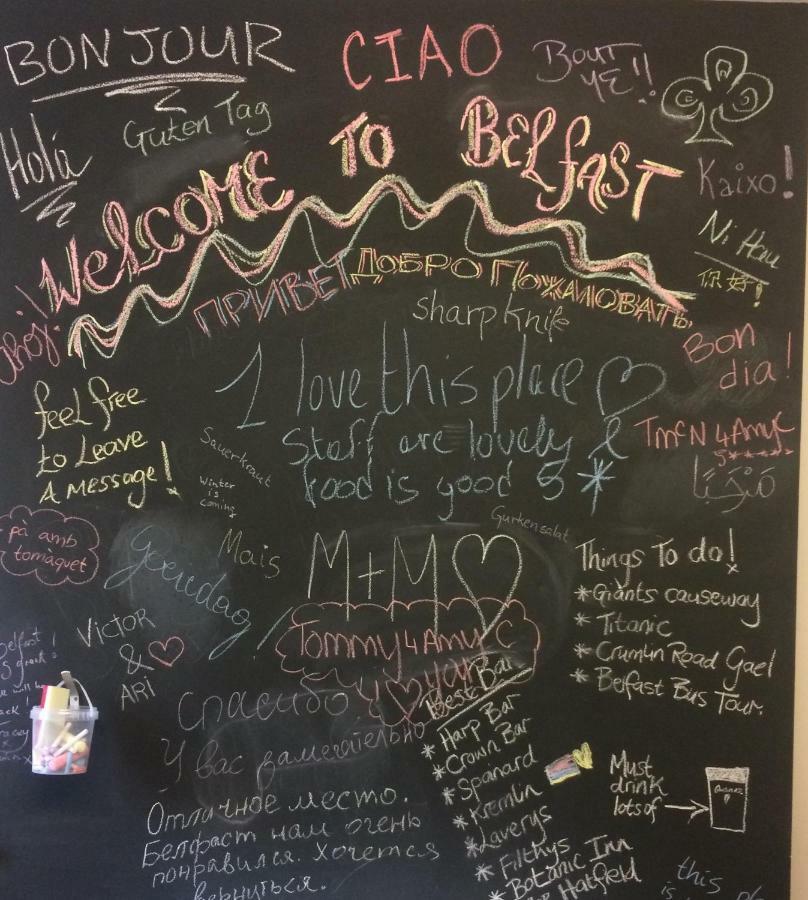 BONJOUR
CIAO
BOUT
YE!!
Hola
Guten Tag
WELCOME TO BELFAST
Kaixo!
Ni Hau
你好!
Ahoj!
ПРИВЕТ
ДОБРО ПОЖАЛОВАТЬ
sharp knife
Bon
dia!
I love this place
Staff are lovely &
food is good 5*
feel free
to Leave
A message!
Sauerkraut
Winter
is
coming
TMcN 4 Amy C
5*****
مَرْحَبًا
Gurkensalat
pà amb
tomàquet
goeiedag!
Mais
M+M
Things To do!
* Giants causeway
* Titanic
* Crumlin Road Gael
* Belfast Bus Tour.
VICTOR
&
ARI
Tommy 4 Amy C
Спасибо
У вас замечательно
Отличное место.
Белфаст нам очень
понравился. Хочется
вернуться.
Best Bar
* Harp Bar
* Crown Bar
* Spanard
* Kremlin
* Laverys
* Filthys
* Botanic Inn
Hatfield
Must
drink
lots of
this
is